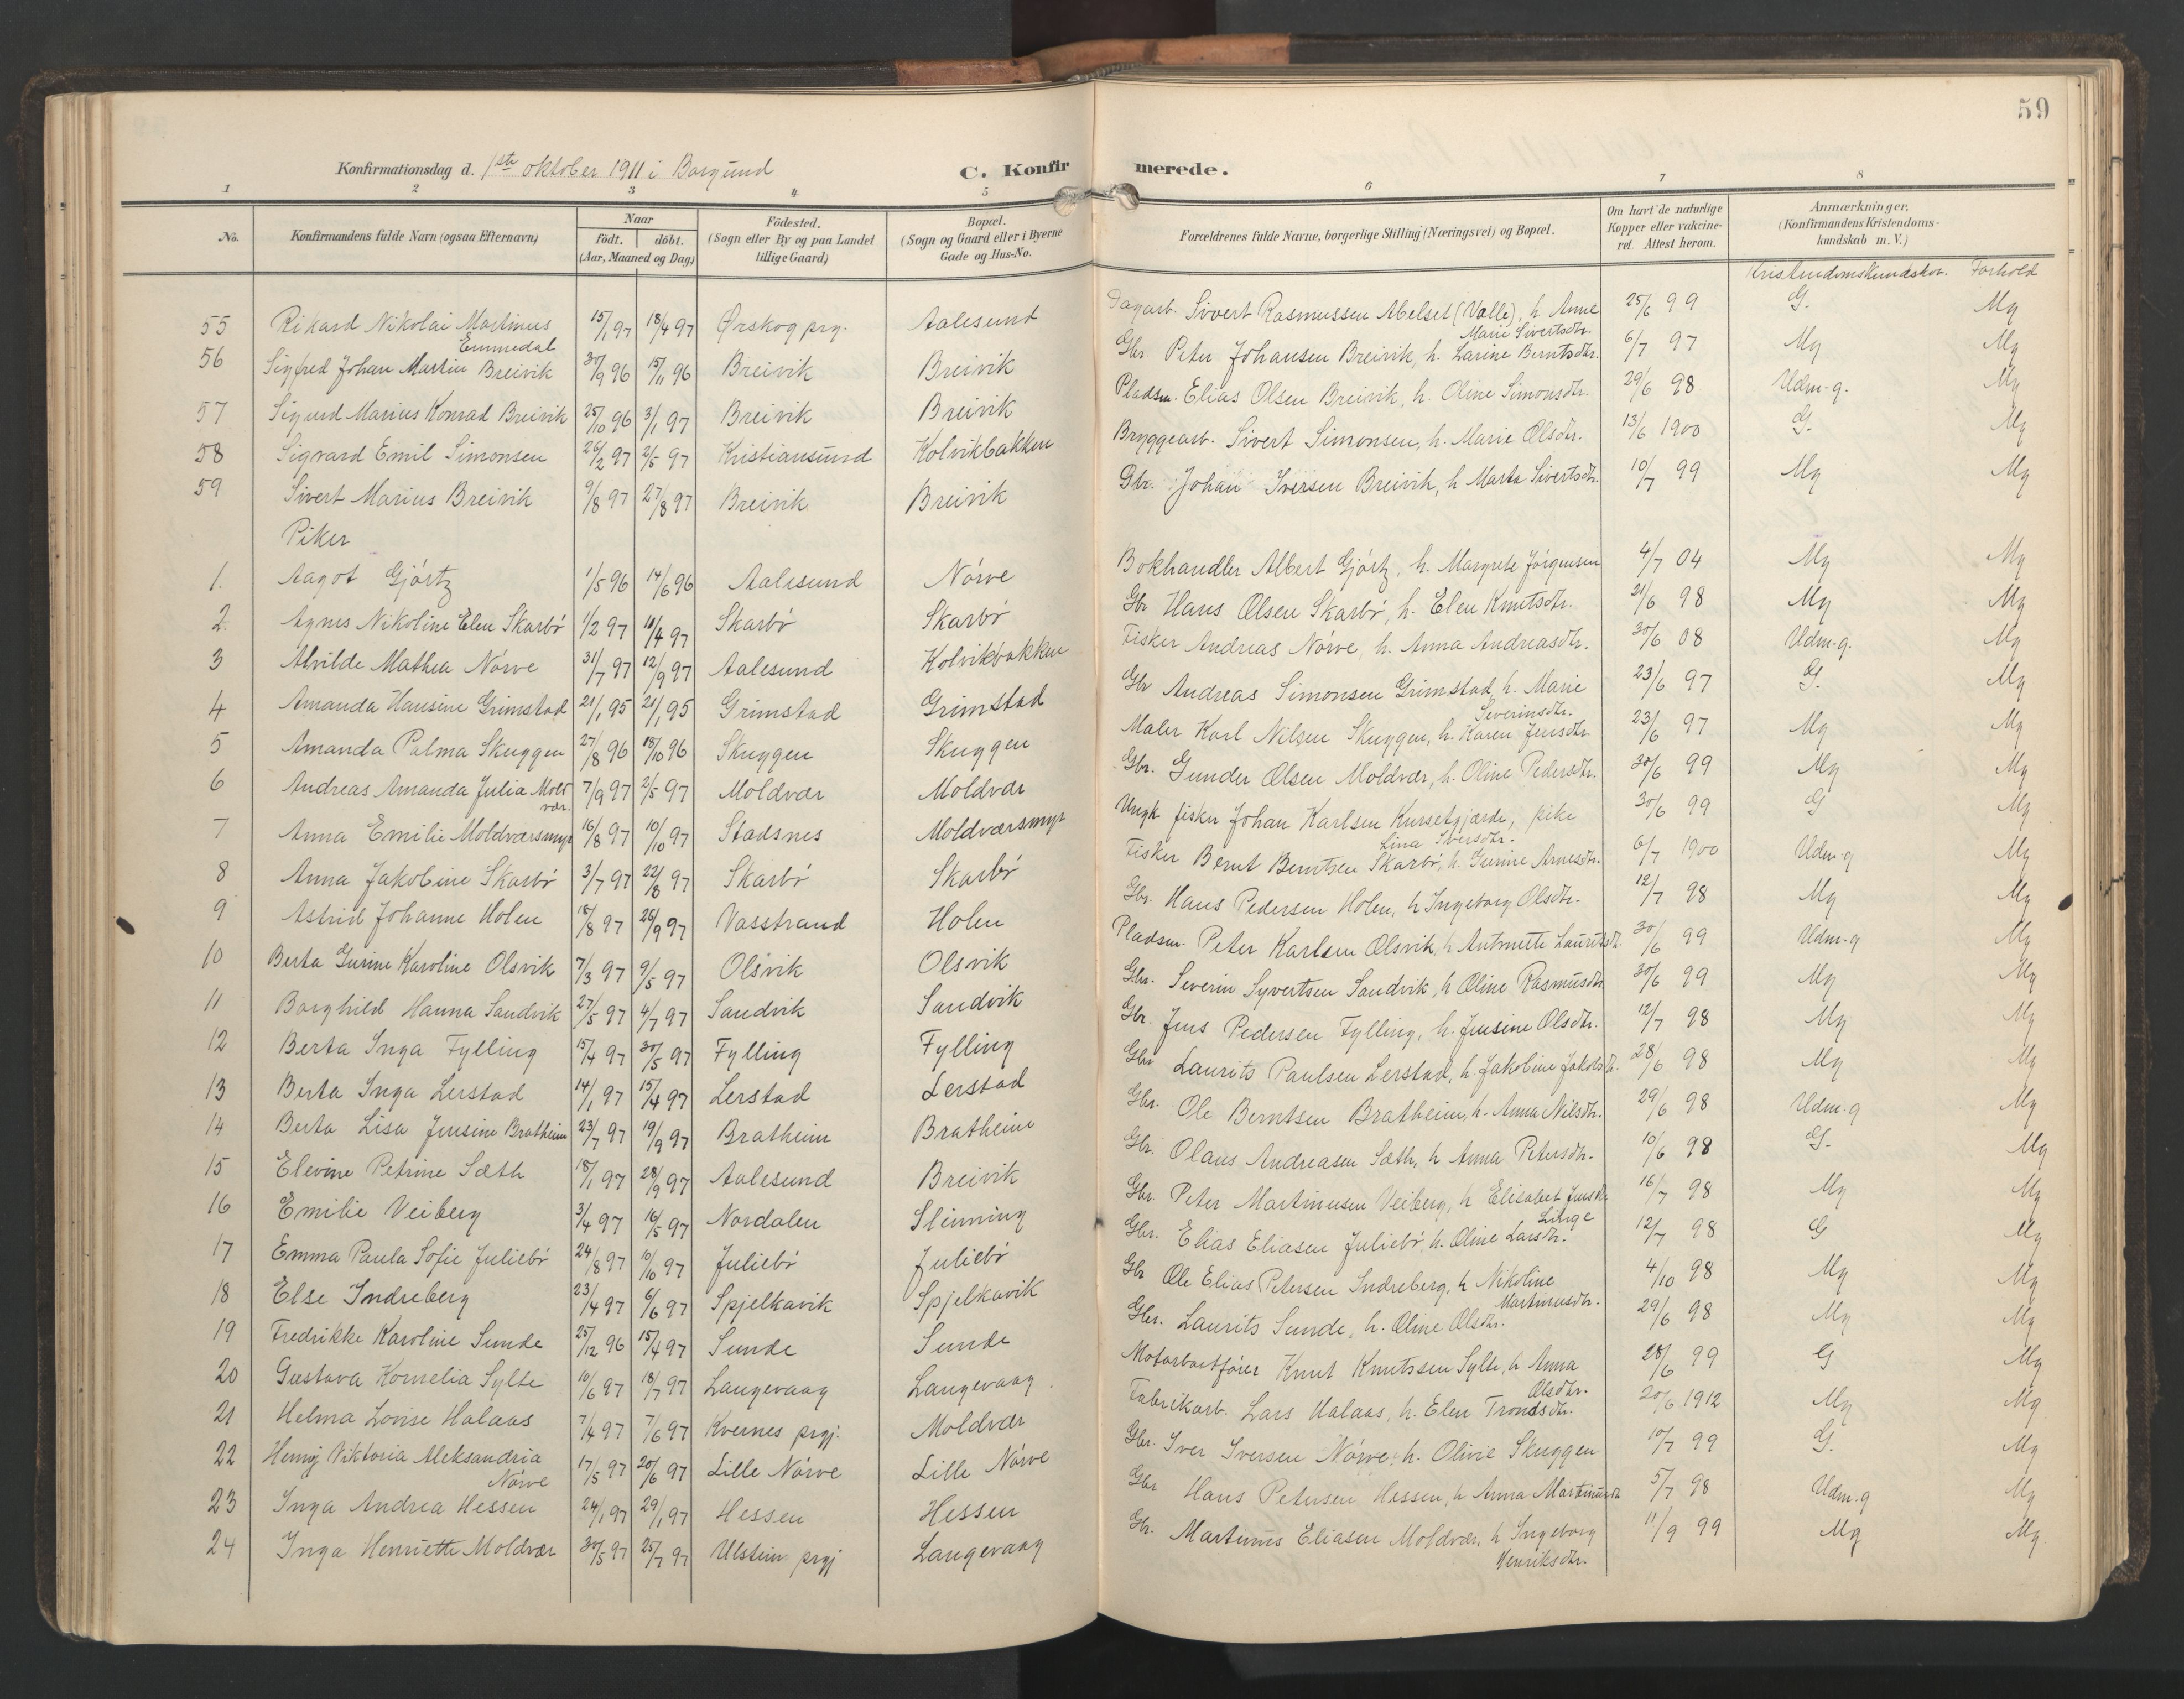 59
Konfirmationsdag d. 1ste oktober 1911 i Borgund
C. Konfirmerede.
1 2 3 4 5 6 7 8
No. Konfirmandens fulde Navn (ogsaa Efternavn) Naar født. døbt. (Aar, Maaned og Dag) Fødested. (Sogn eller By og paa Landet tillige Gaard) Bopæl. (Sogn og Gaard eller i Byerne Gade og Hus-No. Forældrenes fulde Navne, borgerlige Stilling (Næringsvei) og Bopæl. Om havt de naturlige Kopper eller vakcineret. Attest herom. Anmærkninger. (Konfirmandens Kristendomskundskab m. V.)
Kristendomskundskab. Forhold
55 Rikard Nikolai Martinus Emmedal 15/1 97 18/4 97 Ørskog prg. Aalesund Dagarb. Sivert Rasmussen Abelset (Valle), h. Anne Marie Sivertsdtr. 25/6 99 G. Mg
56 Sigfred Johan Martin Breivik 30/9 96 15/11 96 Breivik Breivik Gbr Peter Johansen Breivik, h. Larine Berntsdtr. 6/7 97 Mg Mg
57 Sigurd Marius Konrad Breivik 25/10 96 3/1 97 Breivik Breivik Pladsm. Elias Olsen Breivik, h. Oline Simonsdtr. 29/6 98 Udm-g. Mg
58 Sigvard Emil Simonsen 26/2 97 2/5 97 Kristiansund Kolvikbakken Bryggearb. Sivert Simonsen, h. Marie Olsdtr. 13/6 1900 G. Mg
59 Sivert Marius Breivik 9/8 97 27/8 97 Breivik Breivik Gbr. Johan Iversen Breivik, h Marta Sivertsdtr. 10/7 99 Mg Mg
Piker
1. Aagot Gjørtz 1/5 96 14/6 96 Aalesund Nørve Bokhandler Albert Gjørtz, h. Margrete Jørgensen 4/7 04 Mg Mg
2. Agnes Nikoline Elen Skarbø 1/2 97 18/4 97 Skarbø Skarbø Gbr Hans Olsen Skarbø, h. Elen Knutsdtr. 21/6 98 Mg Mg
3 Alvilde Mathea Nørve 31/7 97 12/9 97 Aalesund Kolvikbakken Fisker Andreas Nørve, h. Anna Andreasdtr. 30/6 08 Udm-g. Mg
4 Amanda Hansine Grimstad 21/1 95 21/1 95 Grimstad Grimstad Gbr Andreas Simonsen Grimstad, h. Marie Severinsdtr. 23/6 97 G. Mg
5 Amanda Palma Skuggen 27/8 96 18/10 96 Skuggen Skuggen Maler Karl Nilsen Skuggen, h. Karen Jensdtr 23/6 97 Mg Mg
6 Andreas Amanda Julia Moldvær. 7/9 97 2/5 97 Moldvær Moldvær Gbr. Gunder Olsen Moldvær, h. Oline Pedersdtr. 30/6 99 Mg Mg
7 Anna Emilie Moldværsmyr 16/8 97 10/10 97 Stadsnes Moldværsmyr Ungk fisker Johan Karlsen Kursetgjærde, pike Lina Iversdtr. 30/6 99 G Mg
8 Anna Jakobine Skarbø 3/7 97 22/8 97 Skarbø Skarbø Fisker Bernt Berntsen Skarbø, h. Gurine Arnesdtr. 6/7 1900 Udm-g Mg
9 Astrid Johanne Holen 18/8 97 26/9 97 Vasstrand Holen Gbr. Hans Pedersen Holen, h Ingeborg Olsdtr. 12/7 98 Mg Mg
10 Berta Gurine Karoline Olsvik 7/3 97 9/5 97 Olsvik Olsvik Pladsm. Peter Karlsen Olsvik, h Antonette Lauritsdt. 30/6 99 Udm-g Mg
11 Borghild Hanna Sandvik 27/5 97 4/7 97 Sandvik Sandvik Gbr. Severin Syvertsen Sandvik, h Oline Rasmusdtr 30/6 99 Mg Mg
12 Berta Inga Fylling 15/4 97 30/5 97 Fylling Fylling Gbr. Jens Pedersen Fylling, h. Jensine Olsdtr. 12/7 98 Mg Mg
13 Berta Inga Lerstad 14/1 97 15/4 97 Lerstad Lerstad Gbr Laurits Paulsen Lerstad, h. Jakobine Jakobsdt. 28/6 98 Mg Mg
14 Berta Lisa Jensine Bratheim 23/7 97 19/9 97 Bratheim Bratheim Gbr. Ole Berntsen Bratheim, h. Anna Nilsdtr. 29/6 98 Udm-g Mg
15 Elevine Petrine Sæth 18/1 97 28/9 97 Aalesund Breivik Gbr. Olaus Andreasen Sæth, h Anna Petersdtr. 10/6 98 G. Mg
16 Emilie Veiberg 3/4 97 16/5 97 Nordalen Slinning Gbr Peter Martinusen Veiberg, h Elisabet Jensdtr Linge 16/7 98 Mg Mg
17 Emma Paula Sofie Juliebø 24/8 97 10/10 97 Juliebø Juliebø Gbr. Elias Eliasen Juliebø, h. Oline Larsdtr. 12/7 98 G Mg
18 Else Indreberg 23/4 97 6/6 97 Spjelkavik Spjelkavik Gbr Ole Elias Petersen Indreberg, h Nikoline Martinusdtr. 4/10 98 Mg Mg
19 Fredrikke Karoline Sunde 25/12 96 15/4 97 Sunde Sunde Gbr. Laurits Sunde, h. Oline Olsdtr. 29/6 98 Mg Mg
20 Gustava Kornelia Sylte 10/6 97 18/7 97 Langevaag Langevaag. Motorbaatfører Knut Knutssen Sylte, h Anna Olsdtr. 28/6 99 G Mg
21 Helma Lovise Halaas 7/4 97 7/6 97 Kvernes prgj. Moldvær Fabrikarb. Lars Halaas, h. Elen Trondsdtr. 20/6 1912 Mg Mg
22 Henny Viktoria Aleksandria Nørve 17/5 97 20/6 97 Lille Nørve Lille Nørve Gbr. Iver Iversen Nørve, h. Olivie Skuggen 10/7 99 G. Mg
23 Inga Andrea Hessen 24/1 97 29/1 97 Hessen Hessen Gbr Hans Petersen Hessen, h Anna Martinusdt 5/7 98 Udm-g Mg
24 Inga Henriette Moldvær 30/5 97 25/7 97 Ulstein prgj Langevaag Gbr. Martinus Eliasen Moldvær, h Ingeborg Henriksdtr. 11/9 99 Mg Mg.